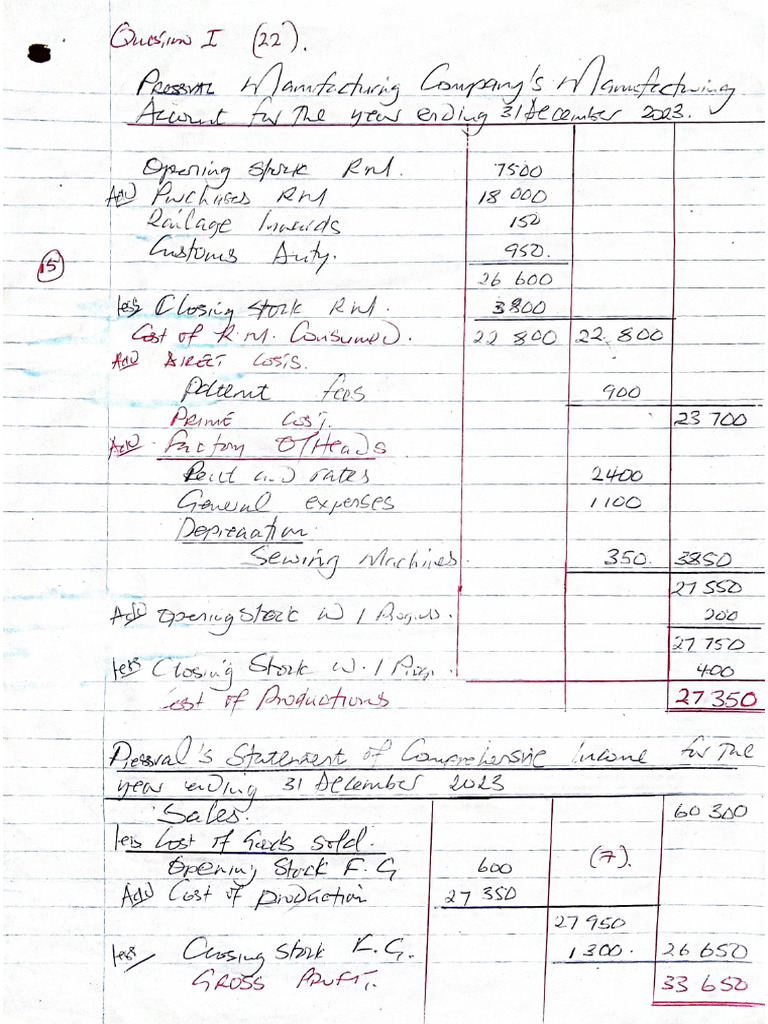 Question I (22).
Pressval Manufacturing Company's Manufacturing
Account for the year ending 31 December 2023.
Opening Stock R.M. 7500
Add Purchases R.M 18 000
Railage Inwards 150
Customs Duty. 950.
15
26 600
less Closing Stock R.M. 3800
Cost of R.M. Consumed. 22 800 22 800
Add DIRECT COSTS.
Patent fees 900
PRIME COST. 23 700
Add Factory O/Heads
Rent and rates 2400
General expenses 1100
Depreciation
Sewing Machines. 350. 3850
27 550
Add Opening Stock W / Progress. 200
27 750
less Closing Stock W. / Prog. 400
Cost of Productions 27 350
Pressval's Statement of Comprehensive Income for the
year ending 31 December 2023
Sales. 60 300
less Cost of Goods Sold.
Opening Stock F.G 600 (7).
Add Cost of production 27 350
27 950
less Closing Stock F.G. 1300. 26 650
GROSS PROFIT. 33 650